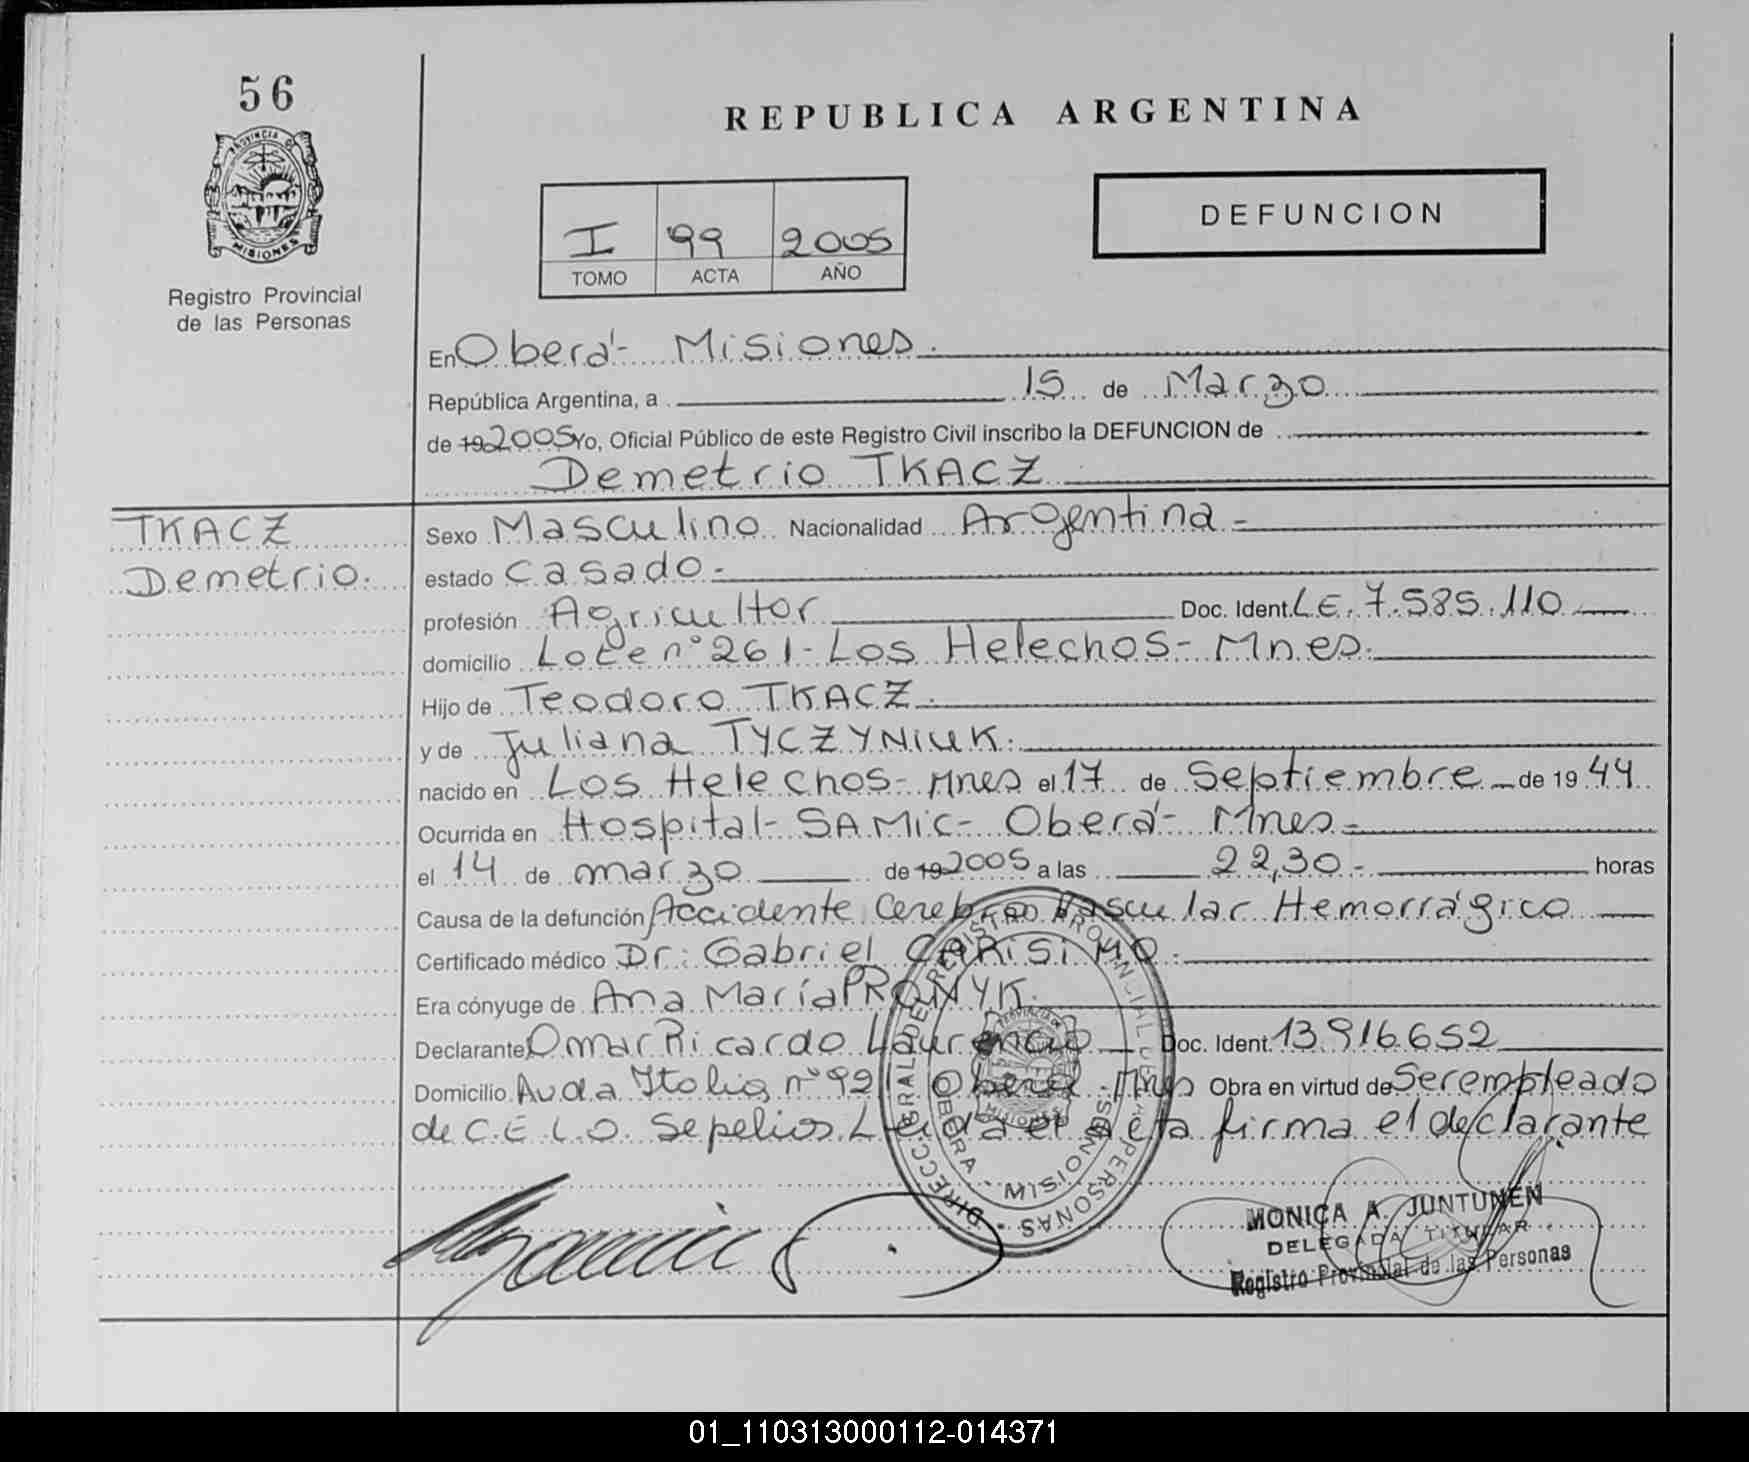 56
PROVINCIA DE
MISIONES
Registro Provincial
de las Personas
REPUBLICA ARGENTINA
I 99 2005
TOMO ACTA AÑO
DEFUNCION
En Oberá- Misiones.
República Argentina, a 15 de Marzo
de 19 2005 Yo, Oficial Público de este Registro Civil inscribo la DEFUNCION de
Demetrio TKACZ
TKACZ
Demetrio.
Sexo Masculino Nacionalidad Argentina -
estado Casado -
profesión Agricultor Doc. Ident. L.E. 7.585.110
domicilio Lote n° 261- Los Helechos- Mnes.
Hijo de Teodoro TKACZ.
y de Juliana TYCZYNIUK.
nacido en Los Helechos- Mnes el 17 de Septiembre de 19 44
Ocurrida en Hospital- SAMIC- Oberá- Mnes -
el 14 de marzo de 19 2005 a las 22,30 - horas
Causa de la defunción Accidente Cerebro Vascular Hemorrágico
Certificado médico Dr: Gabriel CARISIMO.
Era cónyuge de Ana María PRONYK.
Declarante Omar Ricardo Laurencio Doc. Ident. 13.916.652
Domicilio Avda Italia n° 92 Oberá - Mnes Obra en virtud de Ser empleado
de C.E.L.O. Sepelios. Leída el acta firma el declarante
DIRECC. GRAL DE REGISTRO PROVINCIAL DE LAS PERSONAS
OBERA - MISIONES
MONICA A. JUNTUNEN
DELEGADA TITULAR
Registro Provincial de las Personas
01_110313000112-014371